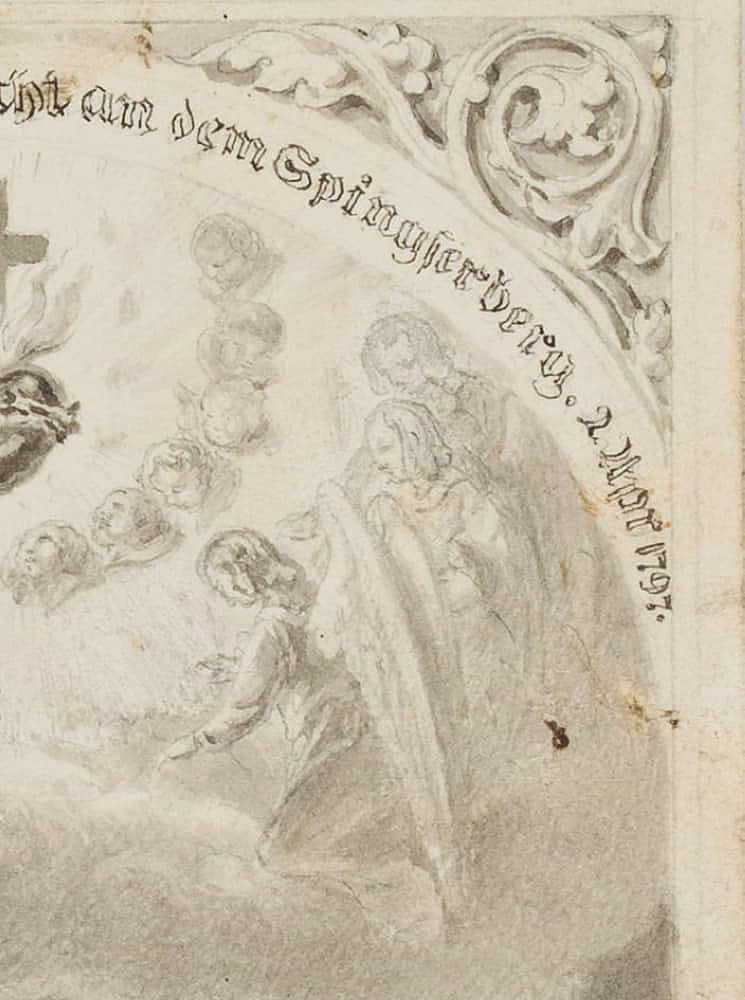 cht an dem Spingſerberg. 2. Apr 1797.